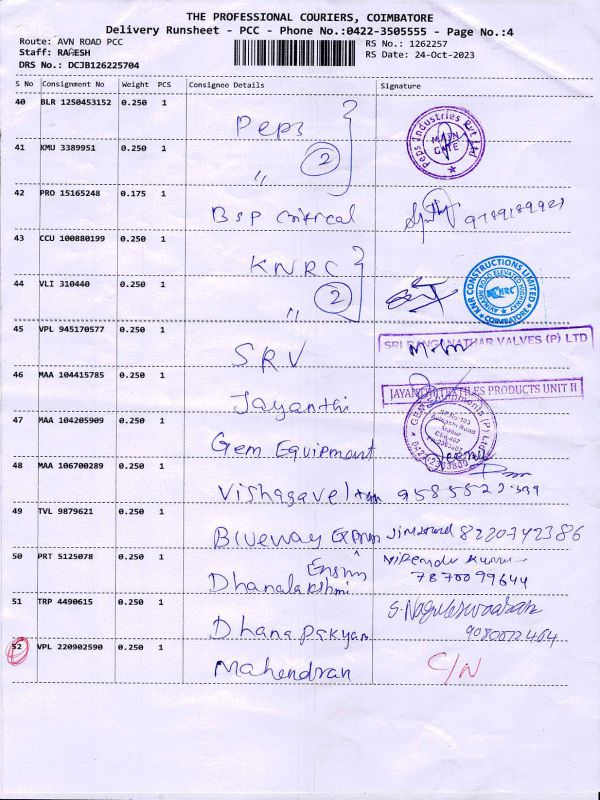 THE PROFESSIONAL COURIERS, COIMBATORE
Delivery Runsheet - PCC - Phone No.:0422-3505555 - Page No.:4
Route: AVN ROAD PCC
RS No.: 1262257
Staff: RAJESH
RS Date: 24-Oct-2023
DRS No.: DCJB126225704
S No Consignment No Weight PCS Consignee Details Signature
40 BLR 1250453152 0.250 1 Peps
Peps Industries Pvt Ltd MAIN GATE
41 KMU 3389951 0.250 1 " 2
42 PRO 15165248 0.175 1 BSP Critical
43 CCU 100880199 0.250 1 KNRC
KNR CONSTRUCTIONS LIMITED
AVINASHI ROAD ELEVATED HIGHWAY
KNRC
COIMBATORE
44 VLI 310440 0.250 1 " 2
45 VPL 945170577 0.250 1 SRV
SRI RANGANATHAR VALVES (P) LTD
46 MAA 104415785 0.250 1 Jayanthi
JAYANTHI TEXTILES PRODUCTS UNIT II
47 MAA 104205909 0.250 1 Gem Equipment
48 MAA 106700289 0.250 1
49 TVL 9879621 0.250 1 Blueway 8220742386
50 PRT 5125078 0.250 1 Dhanalakshmi 7870099644
51 TRP 4490615 0.250 1
52 VPL 220902590 0.250 1 Mahendran C/N